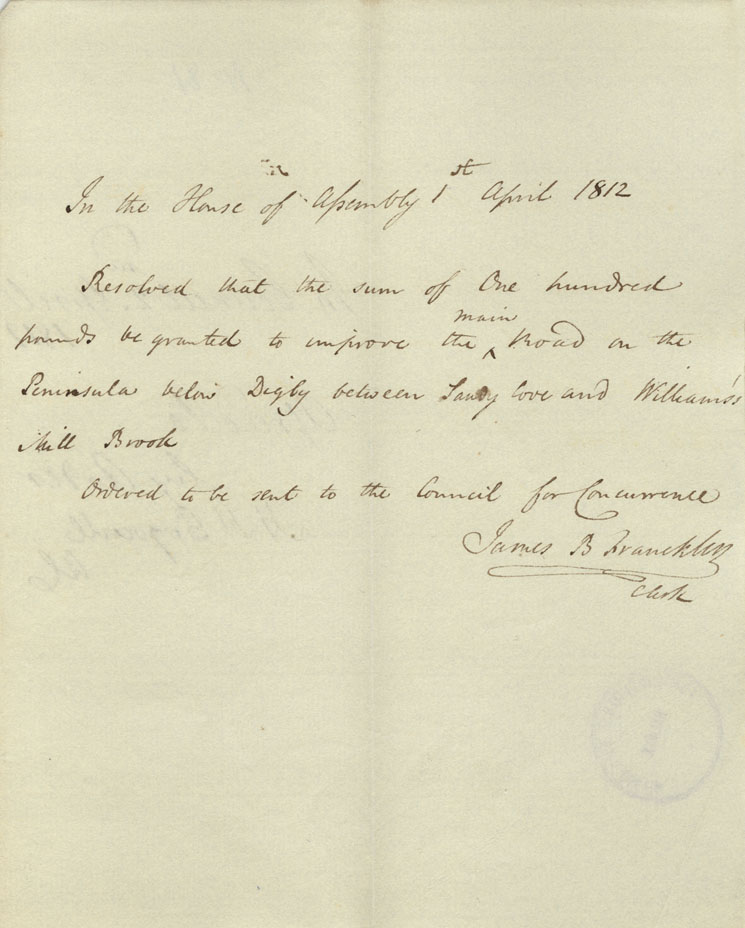 In the House of Assembly 1st April 1812
Resolved that the sum of One hundred
pounds be granted to improve the main Road on the
Peninsula below Digby between Sandy Cove and William's
Mill Brook
Ordered to be sent to the Council for Concurrence
James B Franckley
Clerk